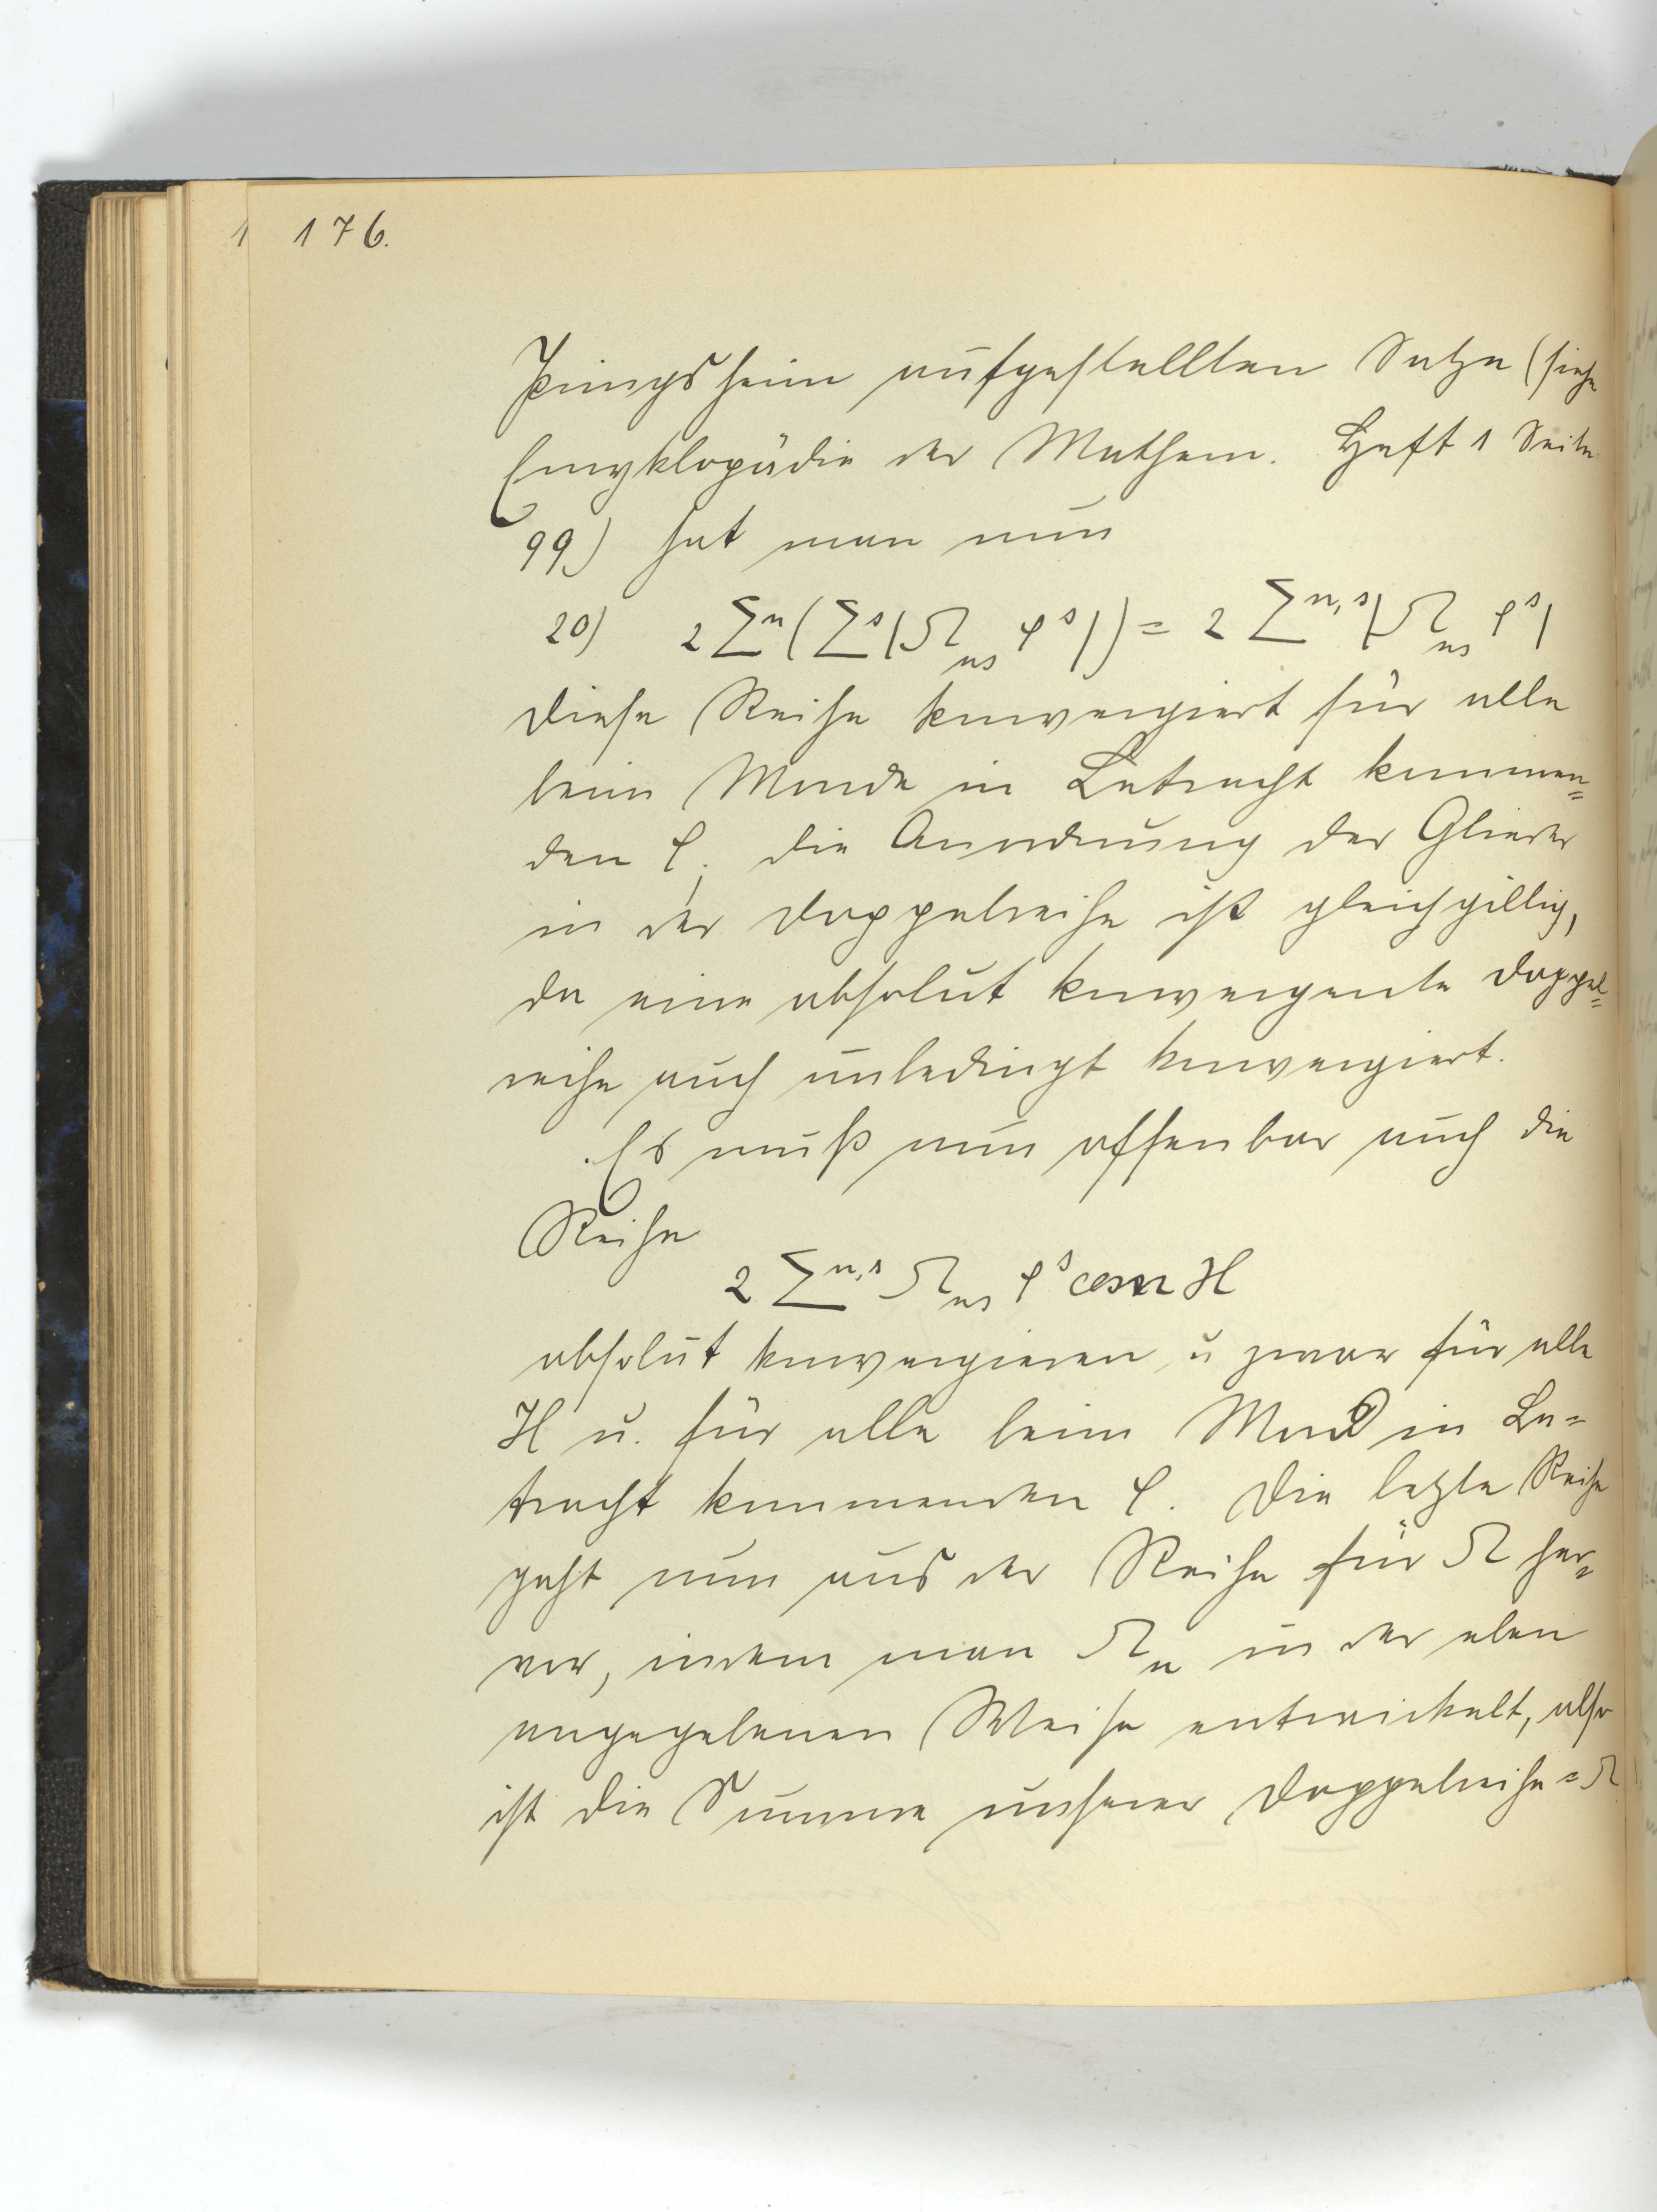 176.
Pringsheim aufgestellten Satze (siehe
Encyklopädie der Mathem. Heft 1 Seite
99) hat man nun
20) 2 Σⁿ(Σˢ|Ω_ns ρˢ|) = 2 Σⁿ,ˢ|Ω_ns ρˢ|
diese Reihe konvergiert für alle
beim Monde in Betracht kommen=
den ρ; die Anordnung der Glieder
in der Doppelreihe ist gleichgiltig,
da eine absolut konvergente Doppel=
reihe auch unbedingt konvergiert.
Es muß nun offenbar auch die
Reihe
2 Σⁿ,ˢ Ω_ns ρˢ cos n H
absolut konvergieren u zwar für alle
H u. für alle beim Mond in Be=
tracht kommenden ρ. Die letzte Reihe
geht nun aus der Reihe für Ω her=
vor, indem man Ω_n in der oben
angegebenen Weise entwickelt, also
ist die Summe unserer Doppelreihe = Ω